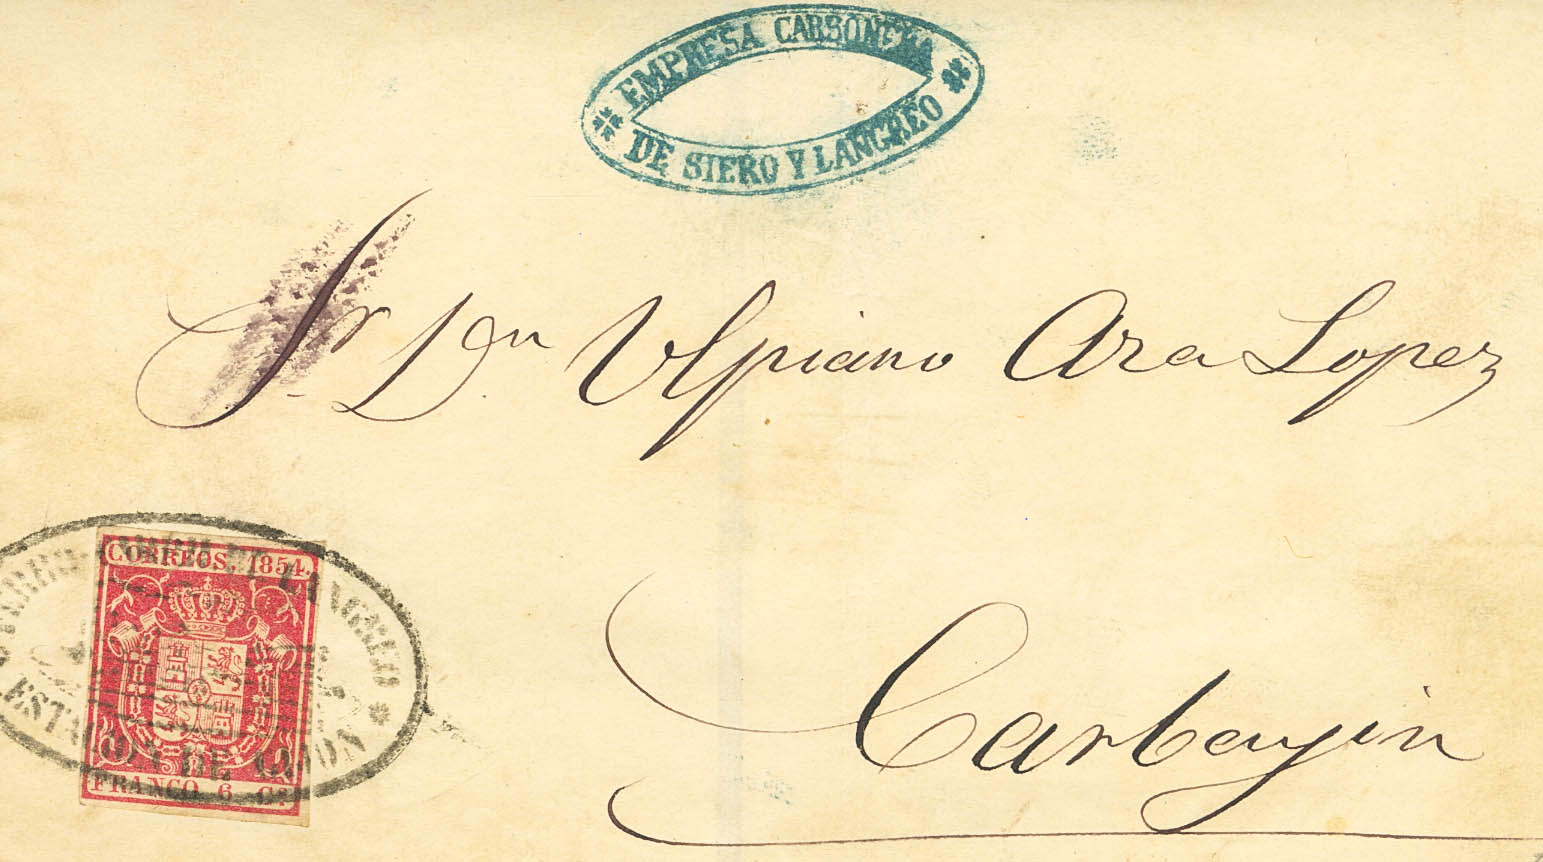 EMPRESA CARBONERA
DE SIERO Y LANGREO
Sr. Dn. Ulpiano Ara Lopez
Carbayin
CORREOS, 1854.
FRANCO 6 Cs
LANGREO
ESTACION DE GIJON